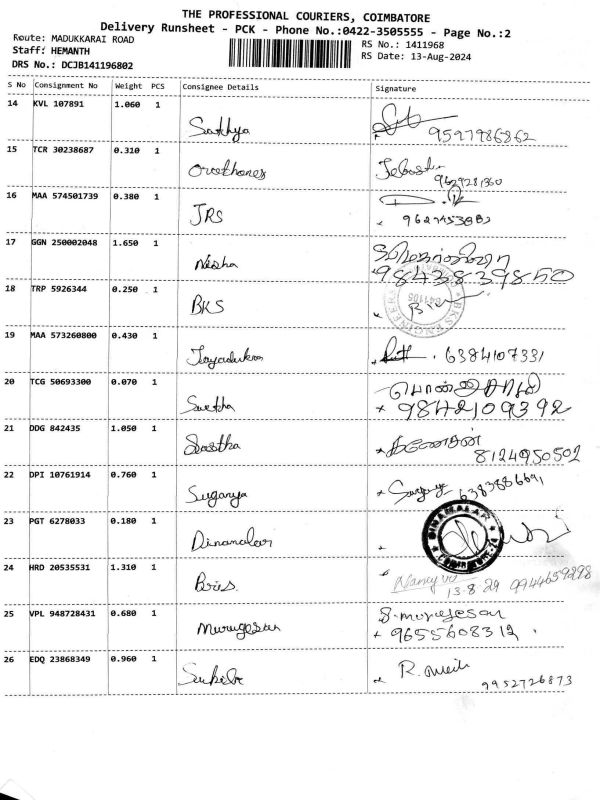 THE PROFESSIONAL COURIERS, COIMBATORE
Delivery Runsheet - PCK - Phone No.:0422-3505555 - Page No.:2
Route: MADUKKARAI ROAD RS No.: 1411968
Staff: HEMANTH RS Date: 13-Aug-2024
DRS No.: DCJB141196802
S No Consignment No Weight PCS Consignee Details Signature
14 KVL 107891 1.060 1
Sathya 9597986862
15 TCR 30238687 0.310 1
16 MAA 574501739 0.380 1
JRS
17 GGN 250002048 1.650 1
Nisha 9843839850
18 TRP 5926344 0.250 1
BKS
BKS ENGINEERS
641105
19 MAA 573260800 0.430 1
6384107331
20 TCG 50693300 0.070 1
9842109392
21 DDG 842435 1.050 1
Sastha 8124950502
22 DPI 10761914 0.760 1
Suganya
23 PGT 6278033 0.180 1
Dinamalar
DINAMALAR
COIMBATORE-24
24 HRD 20535531 1.310 1
13-8-24 9944659298
25 VPL 948728431 0.680 1
Murugesan S. murugesan
9655608312
26 EDQ 23868349 0.960 1
9952726873